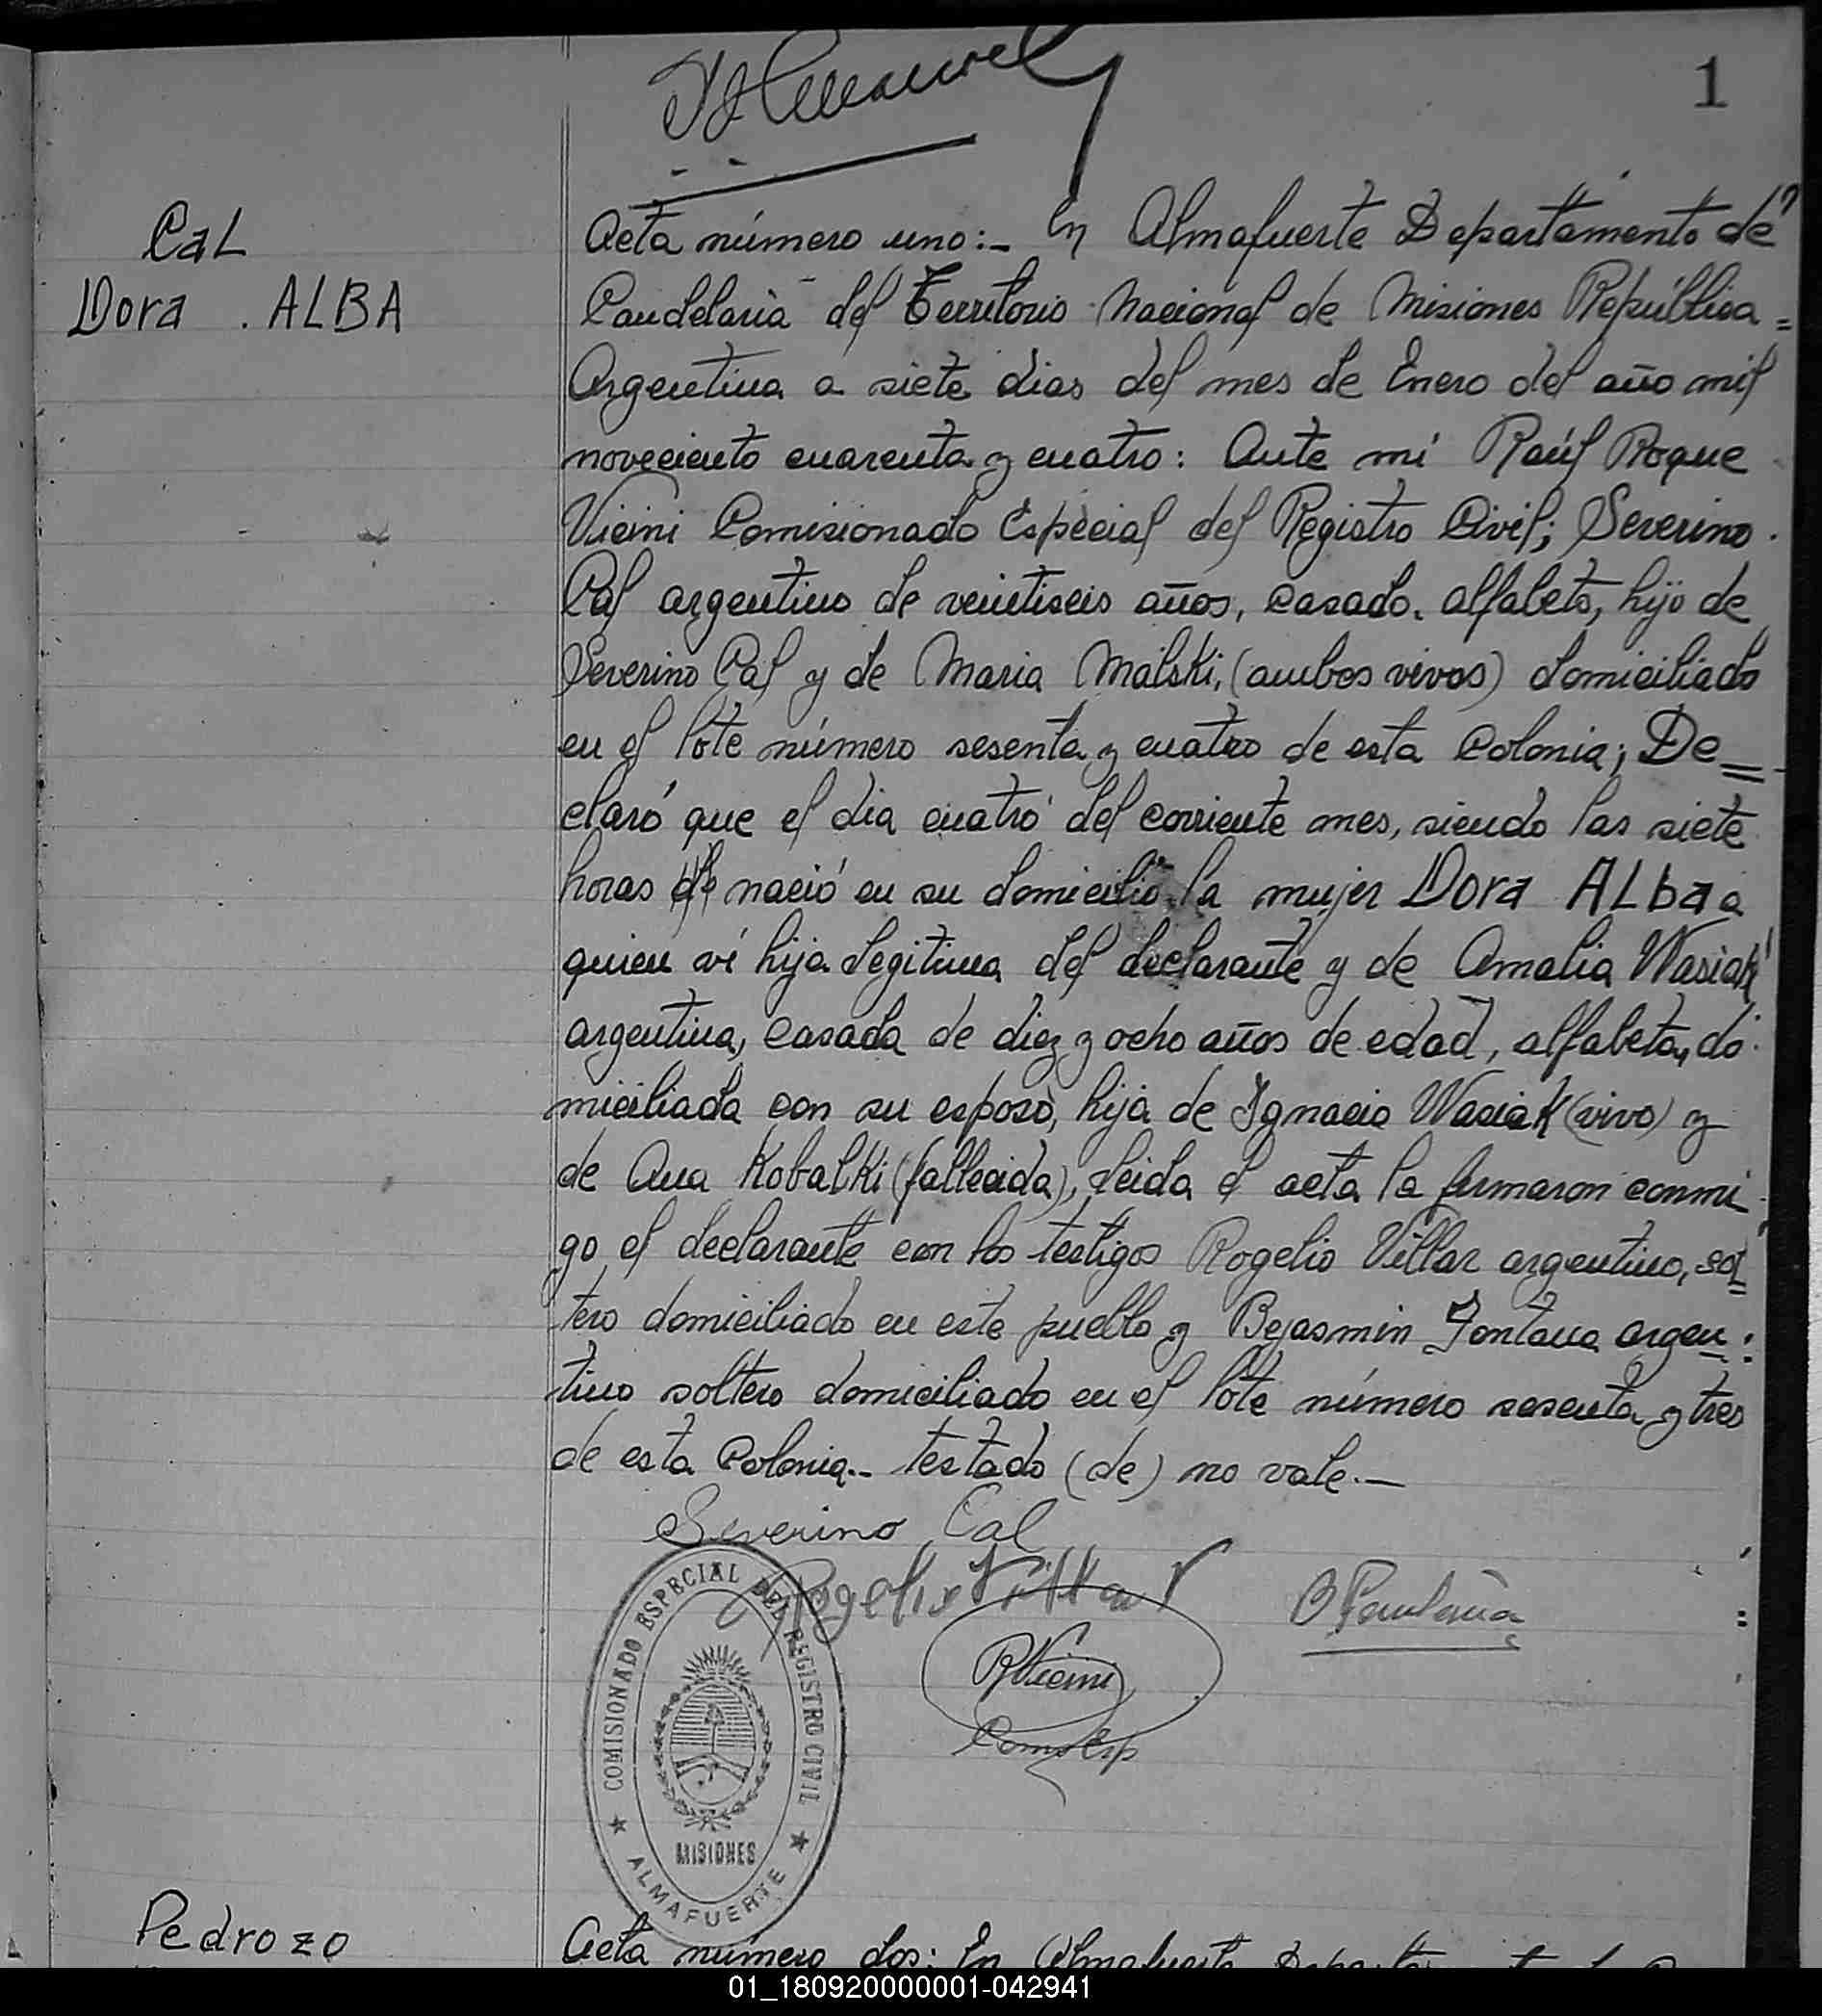 1
Cal
Dora . ALBA
Acta número uno:- En Almafuerte Departamento de
Candelaria del Territorio Nacional de Misiones República =
Argentina a siete dias del mes de Enero del año mil
noveciento cuarenta y cuatro: Ante mi Raúl Roque
Vicini Comisionado Especial del Registro Civil; Severino
Cal argentino de veintiseis años, casado, alfabeto, hijo de
Severino Cal y de Maria Malski, (ambos vivos) domiciliado
en el lote número sesenta y cuatro de esta Colonia; De=
claró que el dia cuatro del corriente mes, siendo las siete
horas de nació en su domicilio la mujer Dora ALba a
quien ví hija legitima del declarante y de Amalia Wasiak
argentina, casada de diez y ocho años de edad, alfabeta, do
miciliada con su esposo, hija de Ignacio Wasiak (vivo) y
de Ana Kobalki (fallecida), leida el acta la firmaron conmi
go el declarante con los testigos Rogelio Villar argentino, sol=
tero domiciliado en este pueblo y Bejasmin Fontana argen=
tino soltero domiciliado en el lote número sesenta y tres
de esta Colonia.- testado (de) no vale.-
Severino Cal
Rogelio Villar
B Fontana
RVicini
Com Esp
COMISIONADO ESPECIAL DEL REGISTRO CIVIL
MISIONES
★ ALMAFUERTE ★
Pedrozo
Acta número dos: En Almafuerte Departamento de
01_180920000001-042941